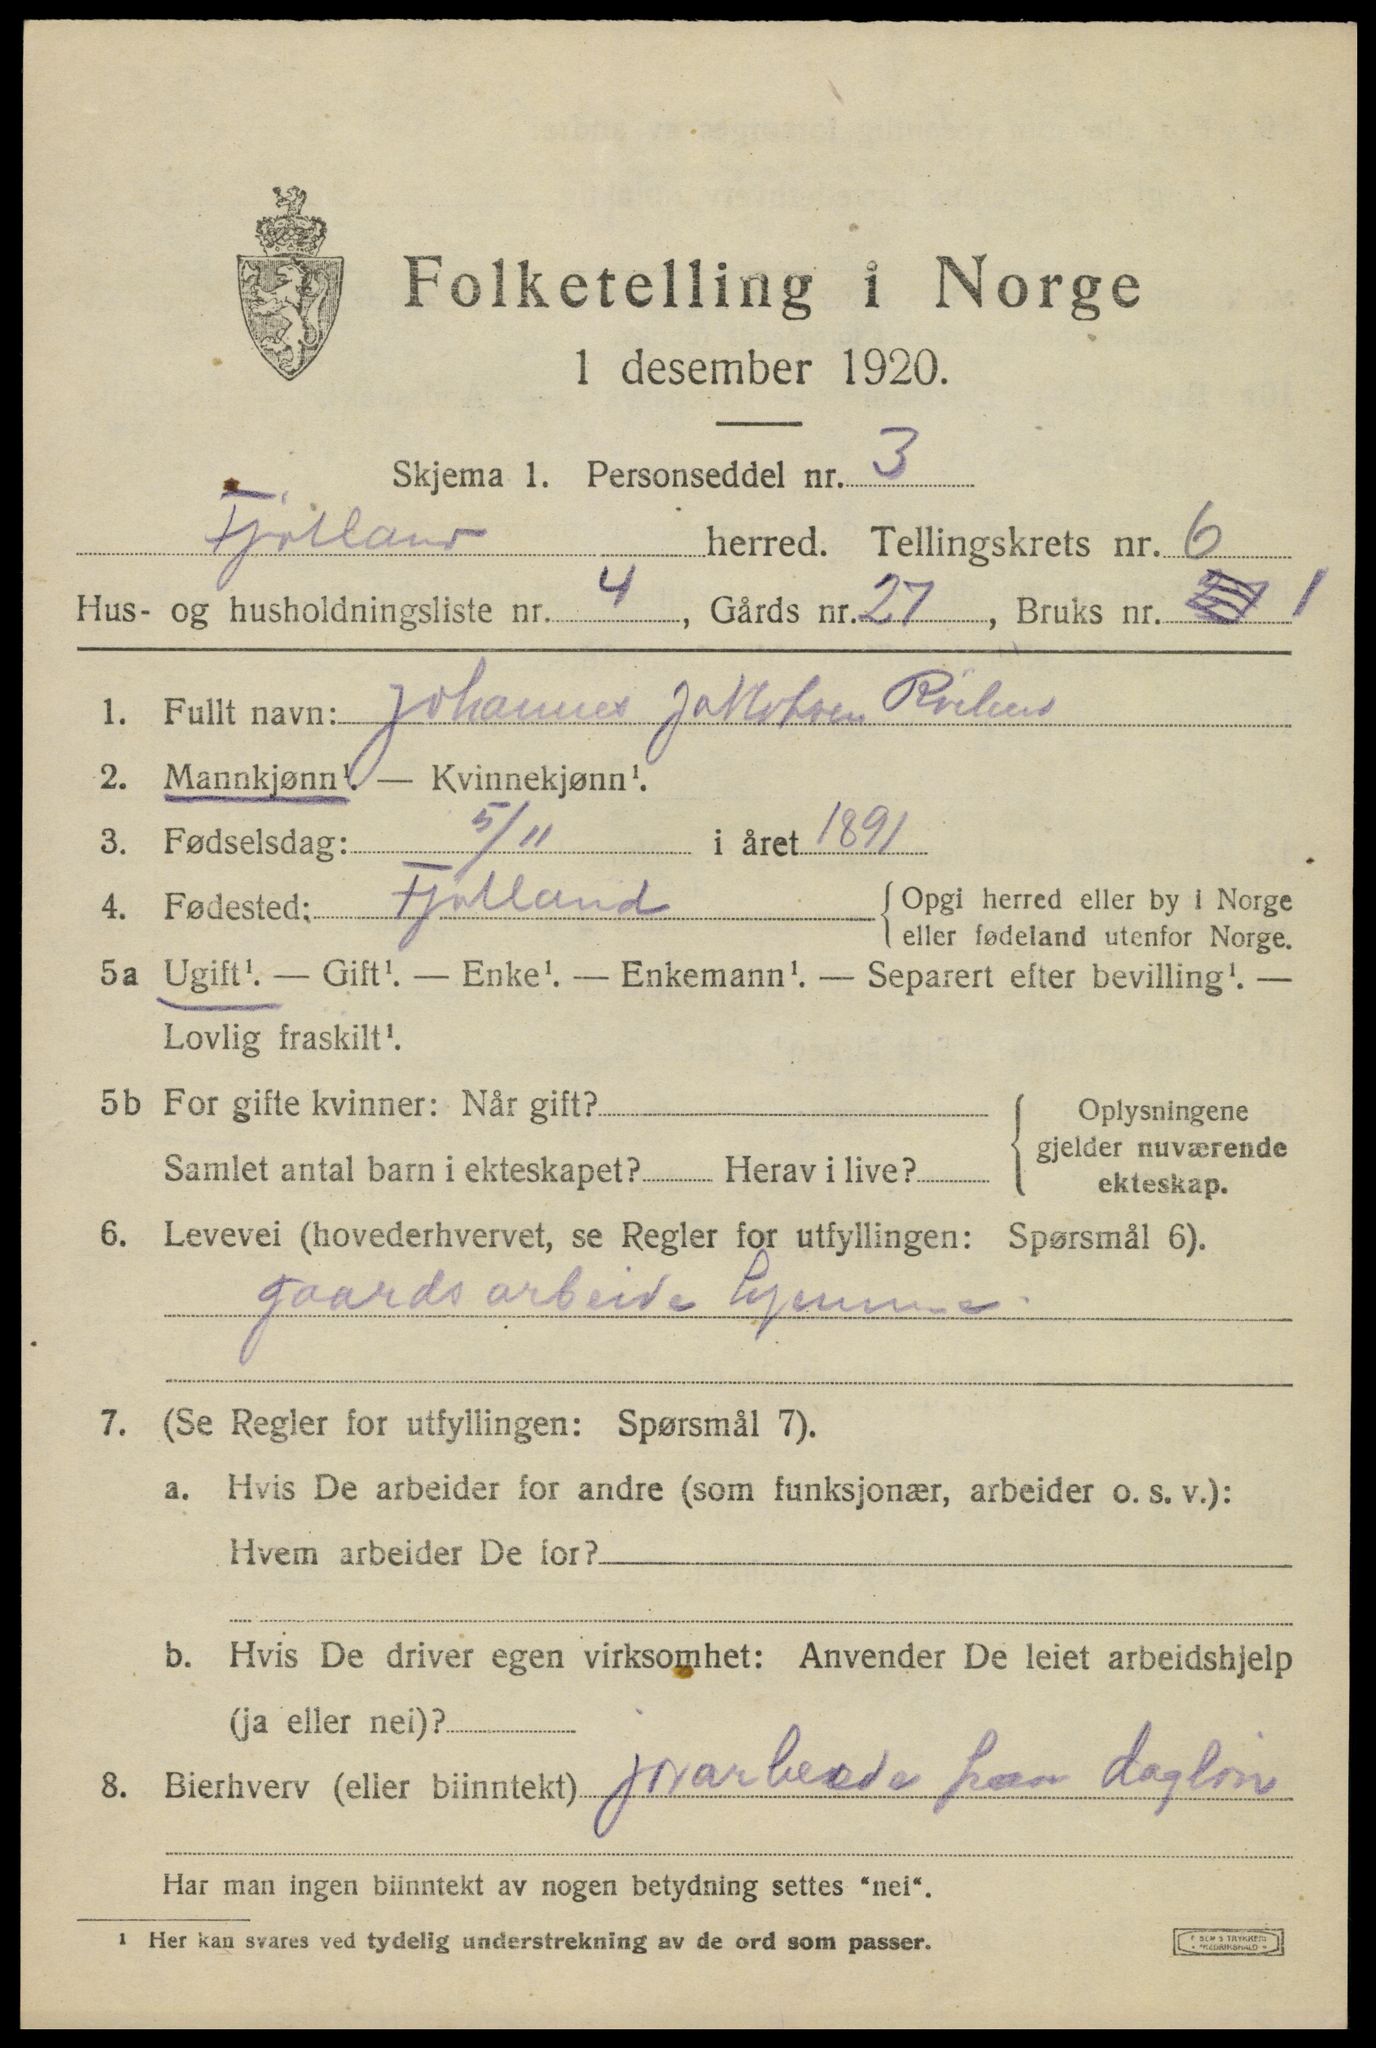 Folketelling i Norge
1 desember 1920.
Skjema 1. Personseddel nr. 3
Fjotland herred. Tellingskrets nr. 6
Hus- og husholdningsliste nr. 4, Gårds nr. 27, Bruks nr. 1
1. Fullt navn: Johannes Jakobsen
2. Mannkjønn¹. — Kvinnekjønn¹.
3. Fødselsdag: 5/11 i året 1891
4. Fødested: Fjotland {Opgi herred eller by i Norge
eller fødeland utenfor Norge.
5a Ugift¹. — Gift¹. — Enke¹. — Enkemann¹. — Separert efter bevilling¹. —
Lovlig fraskilt¹.
5b For gifte kvinner: Når gift?
Samlet antal barn i ekteskapet? Herav i live?
{Oplysningene
gjelder nuværende
ekteskap.
6. Levevei (hovederhvervet, se Regler for utfyllingen: Spørsmål 6).
gaardsarbeide hjemme
7. (Se Regler for utfyllingen: Spørsmål 7).
a. Hvis De arbeider for andre (som funksjonær, arbeider o. s. v.):
Hvem arbeider De for?
b. Hvis De driver egen virksomhet: Anvender De leiet arbeidshjelp
(ja eller nei)?
8. Bierhverv (eller biinntekt) jorarbeide paa dagløn
Har man ingen biinntekt av nogen betydning settes "nei".
1 Her kan svares ved tydelig understrekning av de ord som passer.